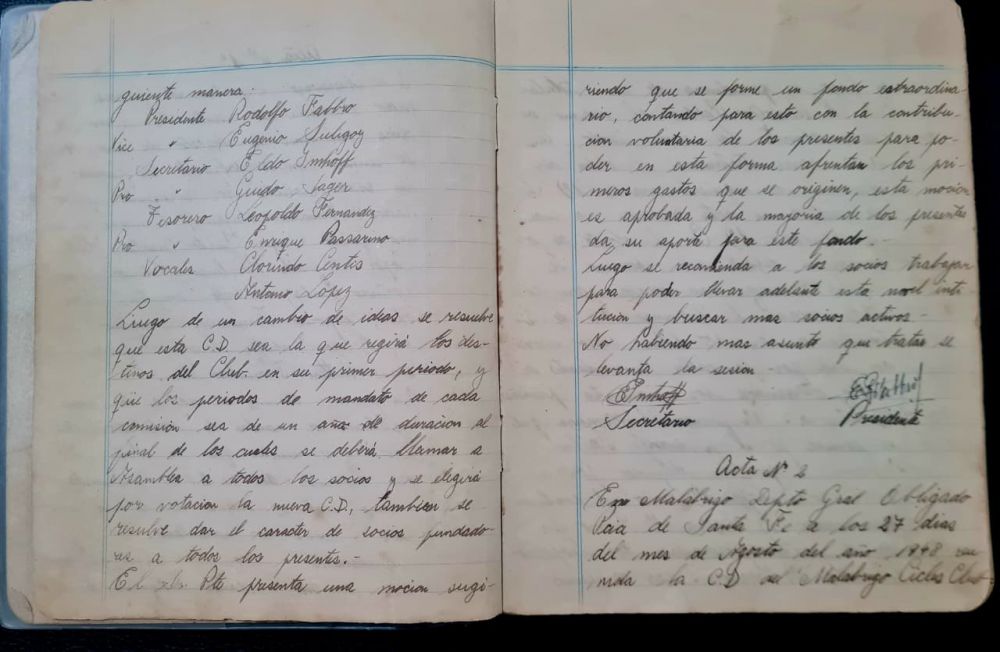 guiente manera:
Presidente Rodolfo Fabbro
Vice " Eugenio Suligoy
Secretario Eldo Imhoff
Pro " Guido Sager
Tesorero Leopoldo Fernandez
Pro " Enrique Passarino
Vocales Clorindo Centis
Antonio Lopez
Luego de un cambio de ideas se resuelve
que esta C.D. sea la que regirá los des-
tinos del Club en su primer periodo, y
que los periodos de mandato de cada
comisión sea de un año de duracion al
final de los cuales se deberá llamar a
Asamblea a todos los socios y se elegirá
por votacion la nueva C.D., tambien se
resuelve dar el caracter de socios fundado-
res a todos los presentes.-
El Pte presenta una mocion sugi-
riendo que se forme un fondo estraordina-
rio, contando para esto con la contribu-
cion voluntaria de los presentes para po-
der en esta forma afrentar los pri-
meros gastos que se originen, esta mocion
es aprobada y la mayoria de los presentes
da su aporte para este fondo.-
Luego se recomienda a los socios trabajar
para poder llevar adelante esta novel insti
tucion y buscar mas socios activos-
No habiendo mas asunto que tratar se
levanta la sesion
EImhoff
Secretario Presidente
Acta Nº 2
En Malabrigo Depto Gral Obligado
Pcia de Santa Fe a los 27 dias
del mes de Agosto del año 1948 reu
nida la C.D del Malabrigo Ciclos Club